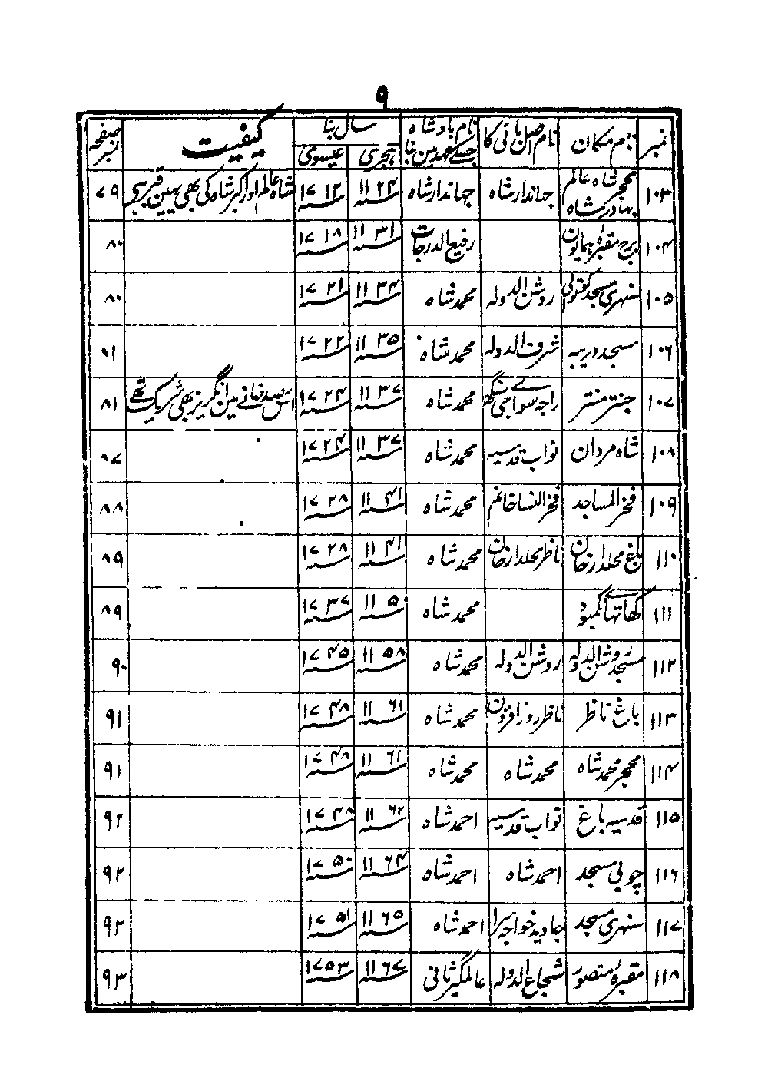 ۹
نمبر | نام مکان | نام اصل بانی کا | نام بادشاہ جسکے عہد مین بنا | سال بنا ہجری | عیسوی | کیفیت | صفحہ نمبر
۱۰۳ | محجر شاہ عالم بہادر شاہ | جہاندار شاہ | جہاندار شاہ | ۱۱۲۴ | ۱۷۱۲ | شاہ عالم اور اکبر شاہ کی بھی یہین قبر ہی | ۷۹
۱۰۴ | برج مقبرہ ہمایون | | رفیع الدرجات | ۱۱۳۱ | ۱۷۱۸ | | ۸۰
۱۰۵ | سنہری مسجد کوتوالی | روشن الدولہ | محمد شاہ | ۱۱۳۴ | ۱۷۲۱ | | ۸۰
۱۰۶ | مسجد دریبہ | شرف الدولہ | محمد شاہ | ۱۱۳۵ | ۱۷۲۲ | | ۸۱
۱۰۷ | جنتر منتر | راجہ سوائی جے سنگھ | محمد شاہ | ۱۱۳۷ | ۱۷۲۴ | اس رصد خانے مین انگریز بھی شریک تھے | ۸۱
۱۰۸ | شاہ مردان | نواب قدسیہ | محمد شاہ | ۱۱۳۷ | ۱۷۲۴ | | ۸۷
۱۰۹ | فخر المساجد | فخر النسا خانم | محمد شاہ | ۱۱۴۱ | ۱۷۲۸ | | ۸۸
۱۱۰ | باغ محلدار خان | ناظر محلدار خان | محمد شاہ | ۱۱۴۱ | ۱۷۲۸ | | ۸۹
۱۱۱ | | | محمد شاہ | ۱۱۵۰ | ۱۷۳۷ | | ۸۹
۱۱۲ | مسجد روشن الدولہ | روشن الدولہ | محمد شاہ | ۱۱۵۸ | ۱۷۴۵ | | ۹۰
۱۱۳ | باغ ناظر | ناظر روز افزون | محمد شاہ | ۱۱۶۱ | ۱۷۴۸ | | ۹۱
۱۱۴ | محجر محمد شاہ | محمد شاہ | محمد شاہ | ۱۱۶۱ | ۱۷۴۸ | | ۹۱
۱۱۵ | قدسیہ باغ | نواب قدسیہ | احمد شاہ | ۱۱۶۲ | ۱۷۴۸ | | ۹۲
۱۱۶ | چوبی مسجد | احمد شاہ | احمد شاہ | ۱۱۶۴ | ۱۷۵۰ | | ۹۲
۱۱۷ | سنہری مسجد | جاوید خواجہ سرا | احمد شاہ | ۱۱۶۵ | ۱۷۵۱ | | ۹۳
۱۱۸ | مقبرہ منصور | شجاع الدولہ | عالمگیر ثانی | ۱۱۶۷ | ۱۷۵۳ | | ۹۳